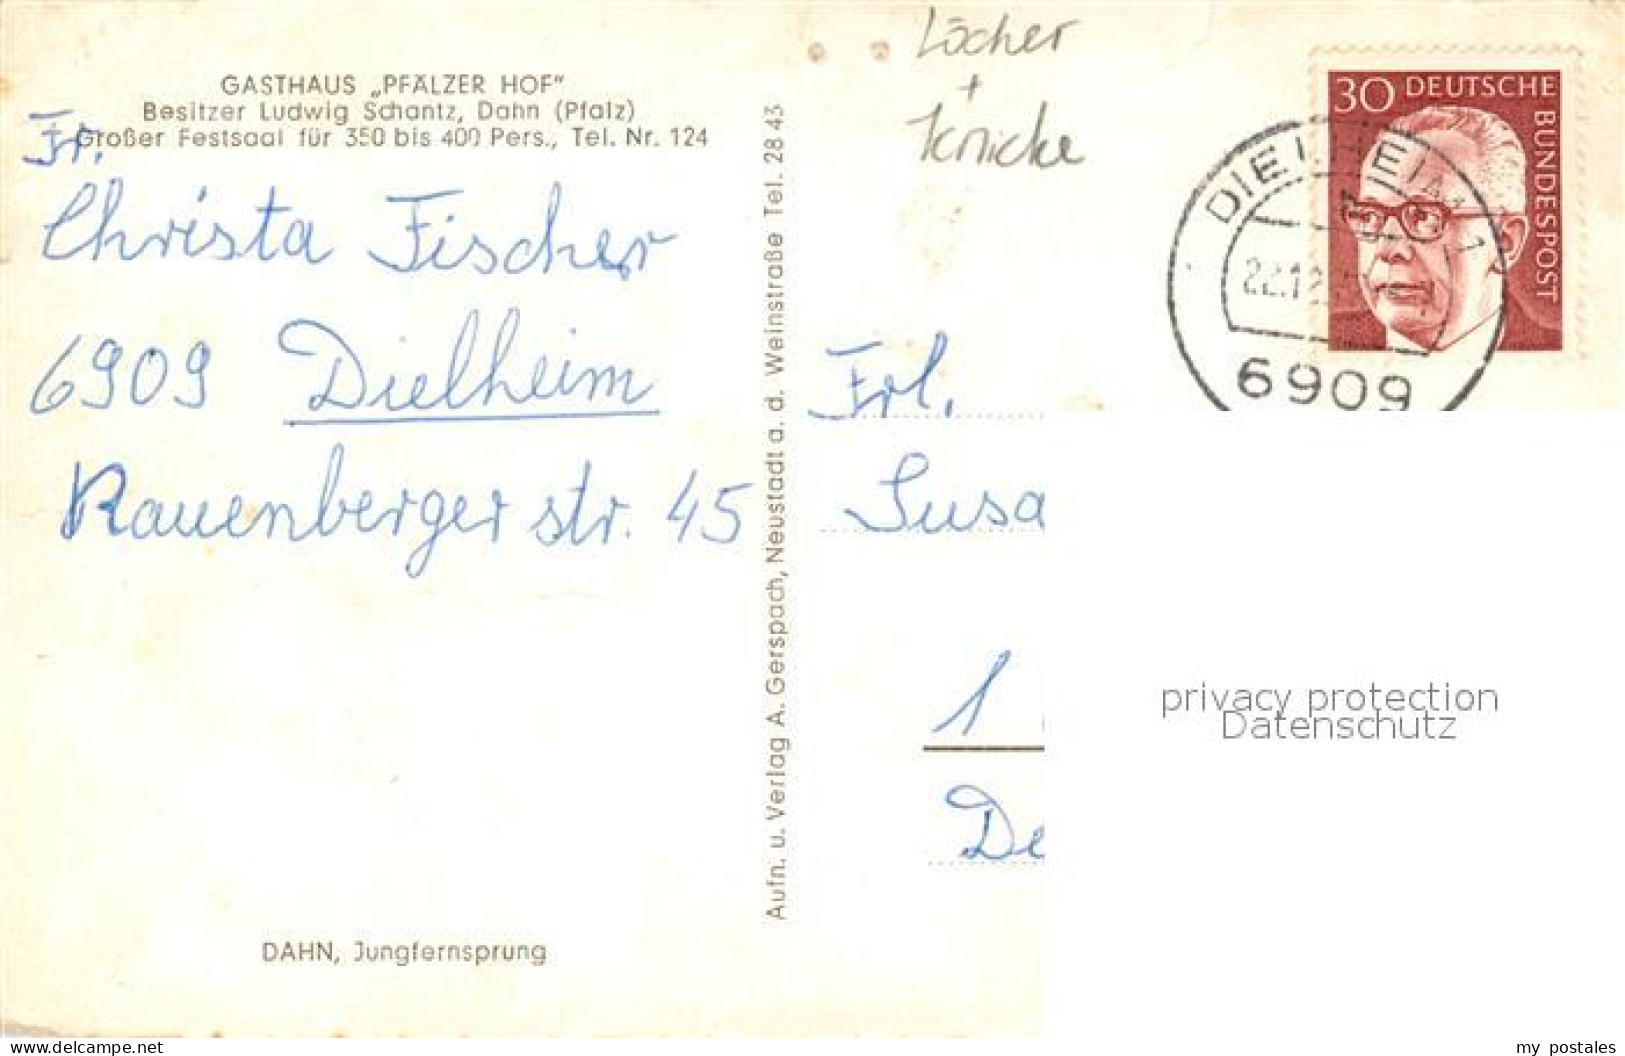 GASTHAUS „PFÄLZER HOF"
Besitzer Ludwig Schantz, Dahn (Pfalz)
Großer Festsaal für 350 bis 400 Pers., Tel. Nr. 124
Fr.
Christa Fischer
6909 Dielheim
Rauenberger str. 45
DAHN, Jungfernsprung
Aufn. u. Verlag A. Gerspach, Neustadt a. d. Weinstraße Tel. 28 43
Löcher
+
Knicke
30 DEUTSCHE
BUNDESPOST
DIELHEIM 1
22.12
6909
Frl.
Susa
1
De
privacy protection
Datenschutz
www.delcampe.net
my_postales